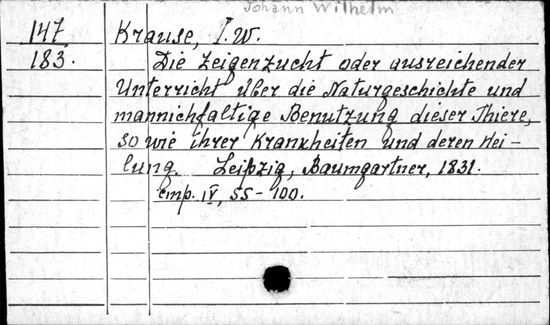 Johann Wilhelm
147 Krause, I. W.
183. Die Zeigenzucht oder ausreichender
Unterricht über die Naturgeschichte und
mannichfaltige Benutzung dieser Thiere,
so wie ihrer Krankheiten und deren Hei-
lung. Leipzig, Baumgartner, 1831.
cmp. IV, 55-100.